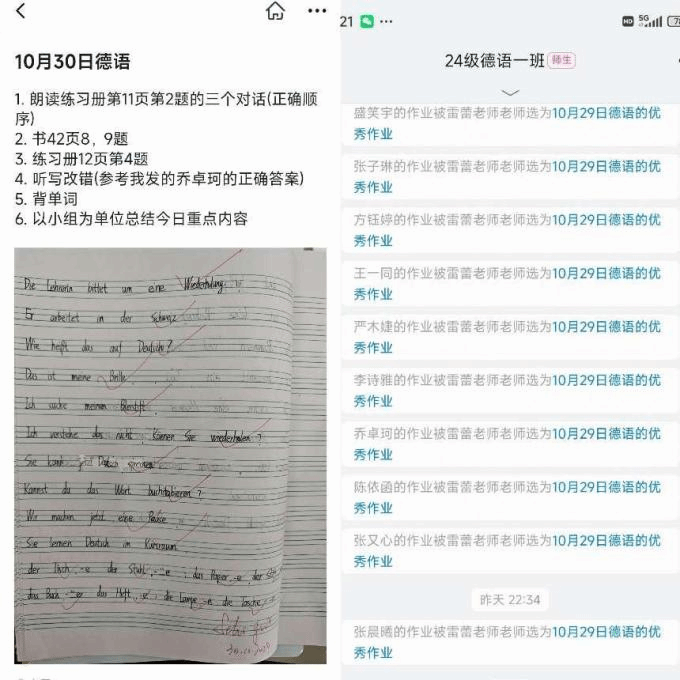 10月30日德语
1. 朗读练习册第11页第2题的三个对话(正确顺
序)
2. 书42页8，9题
3. 练习册12页第4题
4. 听写改错(参考我发的乔卓珂的正确答案)
5. 背单词
6. 以小组为单位总结今日重点内容
Die Lehrerin bittet um eine Wiederholung.
Er arbeitet in der Schweiz
Wie heißt das auf Deutsch?
Das ist meine Brille.
Ich suche meinen Bleistift.
Ich verstehe das nicht. Können Sie wiederholen?
Sie kann jetzt Deutsch sprechen
Kannst du das Wort buchstabieren?
Wir machen jetzt eine Pause
Sie lernen Deutsch im Kursraum
der Tisch, -e der Stuhl, -¨e ; das Papier, -e, der
das Buch -¨er das Heft, -e ; die Lampe -n die Tasche,
Sehr gut
21
HD 5G
24级德语一班 师生
盛笑宇的作业被雷蕾老师老师选为10月29日德语的优
秀作业
张子琳的作业被雷蕾老师老师选为10月29日德语的优
秀作业
方钰婷的作业被雷蕾老师老师选为10月29日德语的优
秀作业
王一同的作业被雷蕾老师老师选为10月29日德语的优
秀作业
严木婕的作业被雷蕾老师老师选为10月29日德语的优
秀作业
李诗雅的作业被雷蕾老师老师选为10月29日德语的优
秀作业
乔卓珂的作业被雷蕾老师老师选为10月29日德语的优
秀作业
陈依函的作业被雷蕾老师老师选为10月29日德语的优
秀作业
张又心的作业被雷蕾老师老师选为10月29日德语的优
秀作业
昨天 22:34
张晨曦的作业被雷蕾老师老师选为10月29日德语的优
秀作业